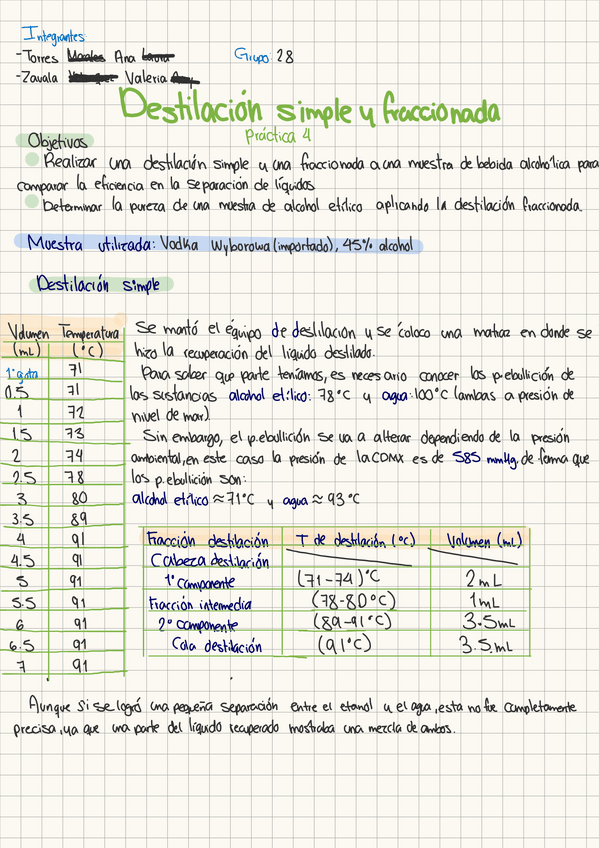 Integrantes:
-Torres Ana
-Zavala Valeria
Grupo: 28
Destilación simple y fraccionada
Práctica 4
Objetivos
Realizar una destilación simple y una fraccionada a una muestra de bebida alcohólica para
comparar la eficiencia en la separación de líquidos
Determinar la pureza de una muestra de alcohol etílico aplicando la destilación fraccionada.
Muestra utilizada: Vodka Wyborowa (importado), 45% alcohol
Destilación simple
Volumen (mL) Temperatura (°C)
1° gota 71
0.5 71
1 72
1.5 73
2 74
2.5 78
3 80
3.5 89
4 91
4.5 91
5 91
5.5 91
6 91
6.5 91
7 91
Se montó el équipo de destilación y se coloco una matraz en donde se
hizo la recuperación del líquido destilado.
Para saber que parte teníamos, es necesario conocer los p.ebullición de
las sustancias alcohol etílico: 78°C y agua:100°C (ambas a presión de
nivel de mar).
Sin embargo, el p.ebullición se va a alterar dependiendo de la presión
ambiental, en este caso la presión de la CDMX es de 585 mmHg, de forma que
los p.ebullición son:
alcohol etílico ≈71°C y agua ≈ 93°C
Fracción destilación T de destilación (°C) Volumen (mL)
Cabeza destilación
1° componente (71-74)°C 2 mL
Fracción intermedia (78-80°C) 1mL
2° componente (89-91°C) 3.5mL
Cola destilación (91°C) 3.5mL
Aunque si se logró una pequeña separación entre el etanol y el agua, esta no fue completamente
precisa, ya que una parte del líquido recuperado mostraba una mezcla de ambos.